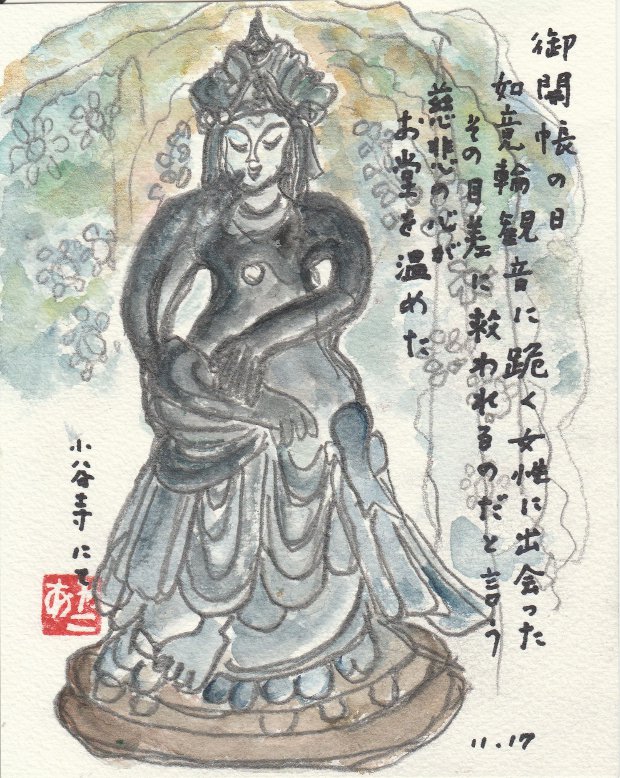 御開帳の日
如意輪観音に跪く女性に出会った
その目差に救われるのだと言う
慈悲の心が
お堂を温めた
小谷寺にて
11.17